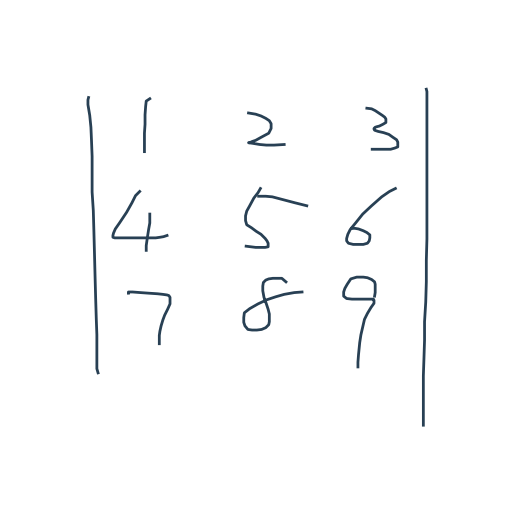 | 1 2 3 |
| 4 5 6 |
| 7 8 9 |